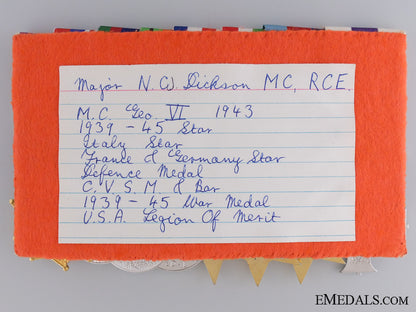 Major N.W. Dickson MC, RCE.
M.C. Geo. VI 1943
1939 - 45 Star
Italy Star
France & Germany Star
Defence Medal
C.V.S.M. & Bar
1939 - 45 War Medal
U.S.A. Legion Of Merit
EMEDALS.com